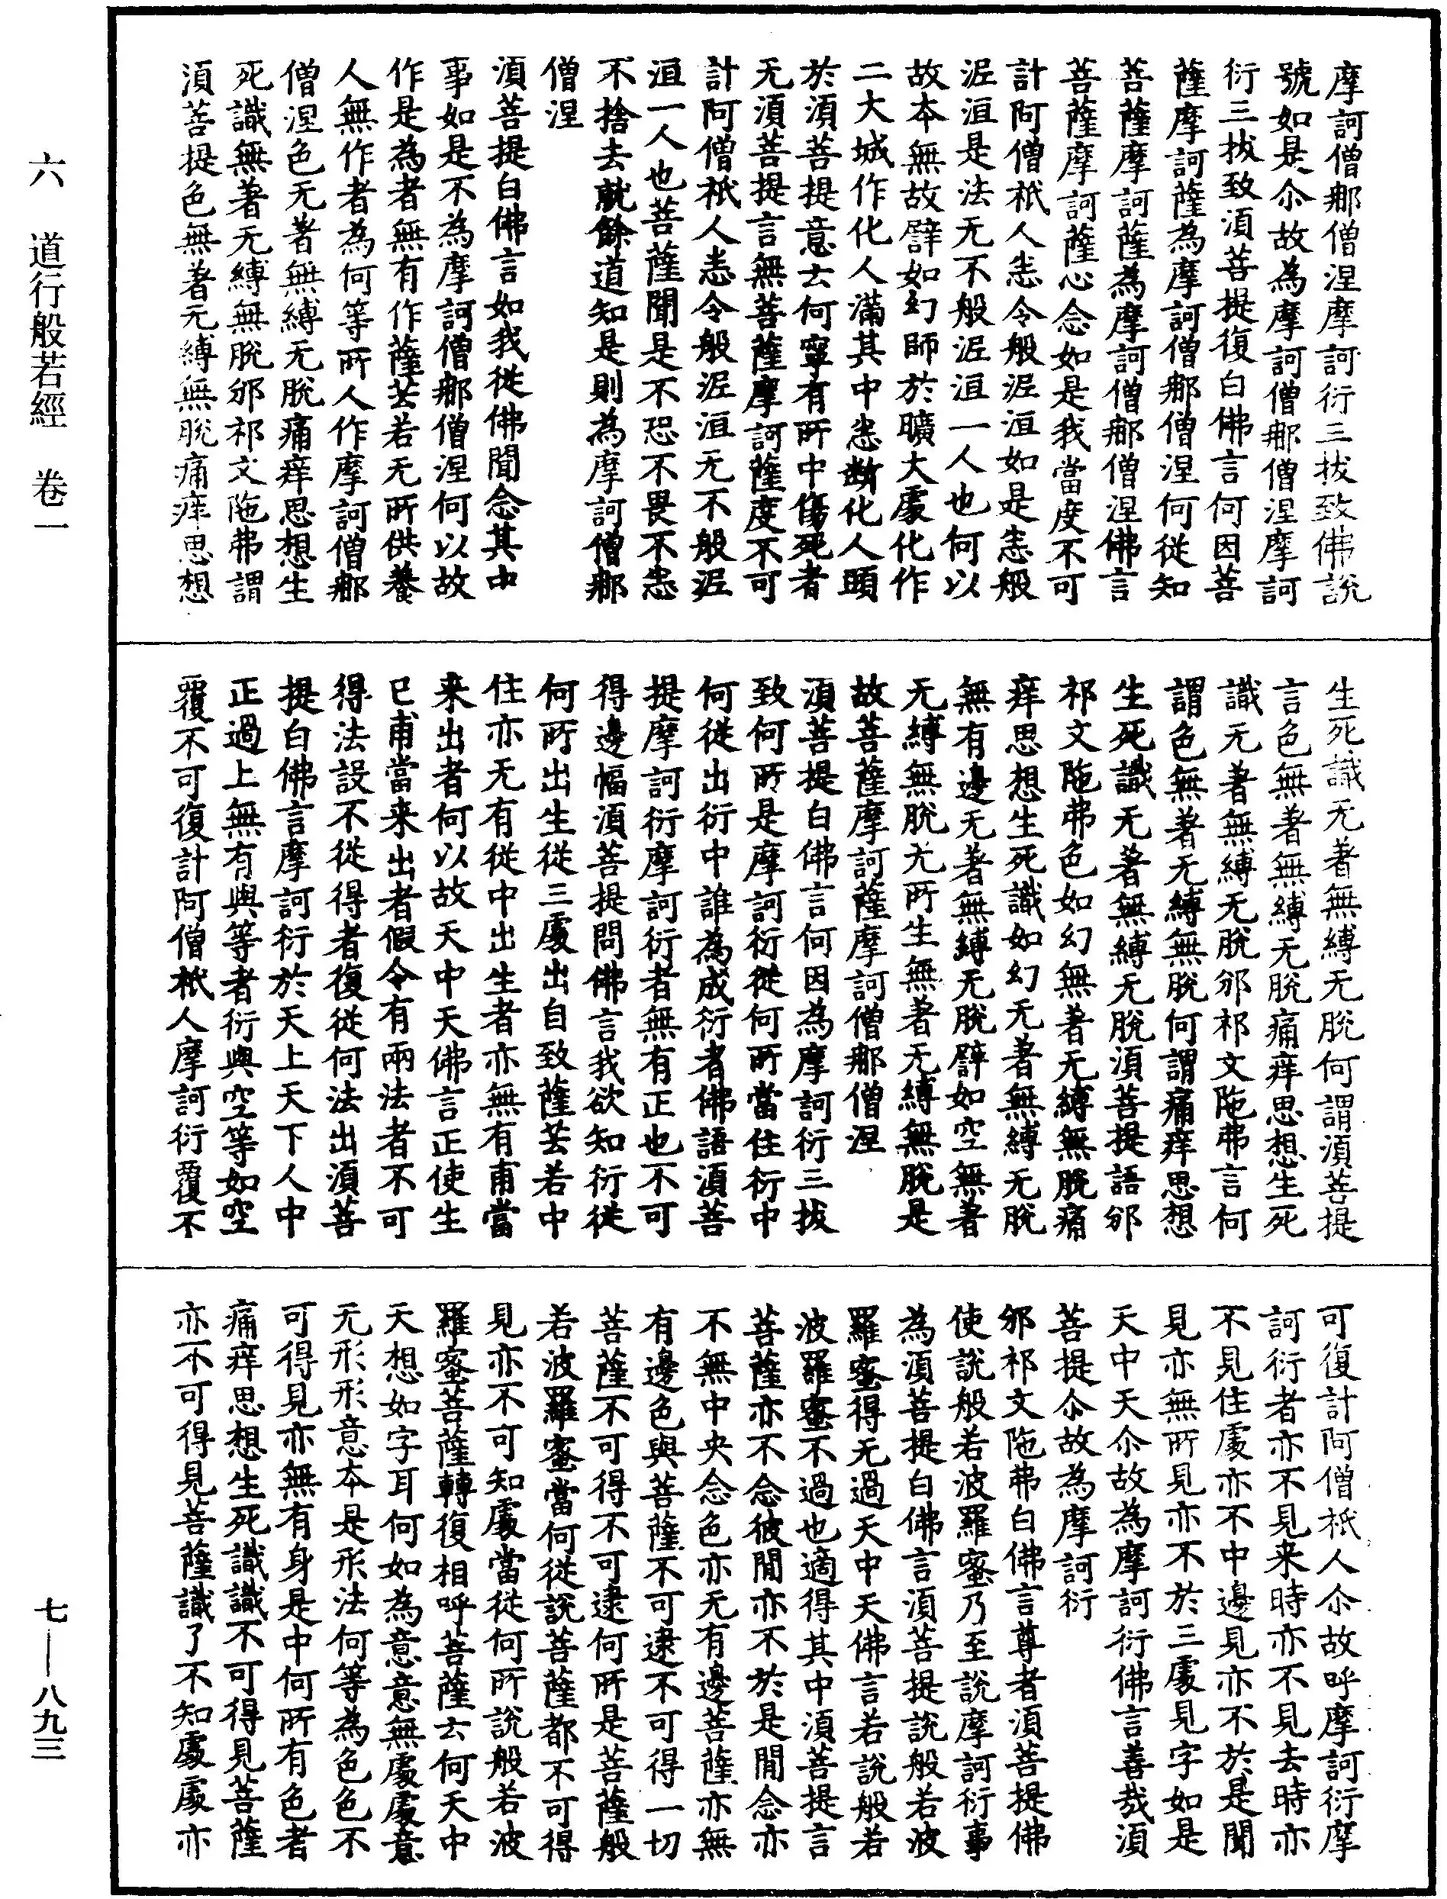 摩訶僧𨚗僧涅摩訶衍三拔致佛說
號如是尒故為摩訶僧𨚗僧涅摩訶
衍三拔致湏菩提復白佛言何因菩
薩摩訶薩為摩訶僧𨚗僧涅何從知
菩薩摩訶薩為摩訶僧𨚗僧涅佛言
菩薩摩訶薩心念如是我當度不可
計阿僧祇人悉令般泥洹如是悉般
泥洹是法无不般泥洹一人也何以
故本無故譬如幻師於曠大處化作
二大城作化人滿其中悉斷化人頭
於湏菩提意云何寧有所中傷死者
无湏菩提言無菩薩摩訶薩度不可
計阿僧祇人悉令般泥洹无不般泥
洹一人也菩薩聞是不恐不畏不恚
不捨去就餘道知是則為摩訶僧𨚗
僧涅
湏菩提白佛言如我從佛聞念其中
事如是不為摩訶僧𨚗僧涅何以故
作是為者無有作薩芸若无所供養
人無作者為何等所人作摩訶僧𨚗
僧涅色无著無縛无脫痛痒思想生
死識無著无縛無脫邠祁文陁弗謂
湏菩提色無著无縛無脫痛痒思想
生死識无著無縛无脫何謂湏菩提
言色無著無縛无脫痛痒思想生死
識无著無縛无脫邠祁文陁弗言何
謂色無著无縛無脫何謂痛痒思想
生死識无著無縛无脫湏菩提語邠
祁文陁弗色如幻無著无縛無脫痛
痒思想生死識如幻无著無縛无脫
無有邊无著無縛无脫譬如空無著
无縛無脫无所生無著无縛無脫是
故菩薩摩訶薩摩訶僧𨚗僧涅
湏菩提白佛言何因為摩訶衍三拔
致何所是摩訶衍從何所當住衍中
何從出衍中誰為成衍者佛語湏菩
提摩訶衍摩訶衍者無有正也不可
得邊幅湏菩提問佛言我欲知衍從
何所出生從三處出自致薩芸若中
住亦无有從中出生者亦無有甫當
来出者何以故天中天佛言正使生
已甫當来出者假令有兩法者不可
得法設不從得者復從何法出湏菩
提白佛言摩訶衍於天上天下人中
正過上無有與等者衍與空等如空
覆不可復計阿僧祇人摩訶衍覆不
可復計阿僧祇人尒故呼摩訶衍摩
訶衍者亦不見来時亦不見去時亦
不見住處亦不中邊見亦不於是聞
見亦無所見亦不於三處見字如是
天中天尒故為摩訶衍佛言善哉湏
菩提尒故為摩訶衍
邠祁文陁弗白佛言尊者湏菩提佛
使說般若波羅蜜乃至說摩訶衍事
為湏菩提白佛言湏菩提說般若波
羅蜜得无過天中天佛言若說般若
波羅蜜不過也適得其中湏菩提言
菩薩亦不念彼閒亦不於是閒念亦
不無中央念色亦无有邊菩薩亦無
有邊色與菩薩不可逮不可得一切
菩薩不可得不可逮何所是菩薩般
若波羅蜜當何從說菩薩都不可得
見亦不可知處當從何所說般若波
羅蜜菩薩轉復相呼菩薩云何天中
天想如字耳何如為意意無處處意
无形形意本是形法何等為色色不
可得見亦無有身是中何所有色者
痛痒思想生死識識不可得見菩薩
亦不可得見菩薩識了不知處處亦
六　道行般若經　卷一
七—八九三